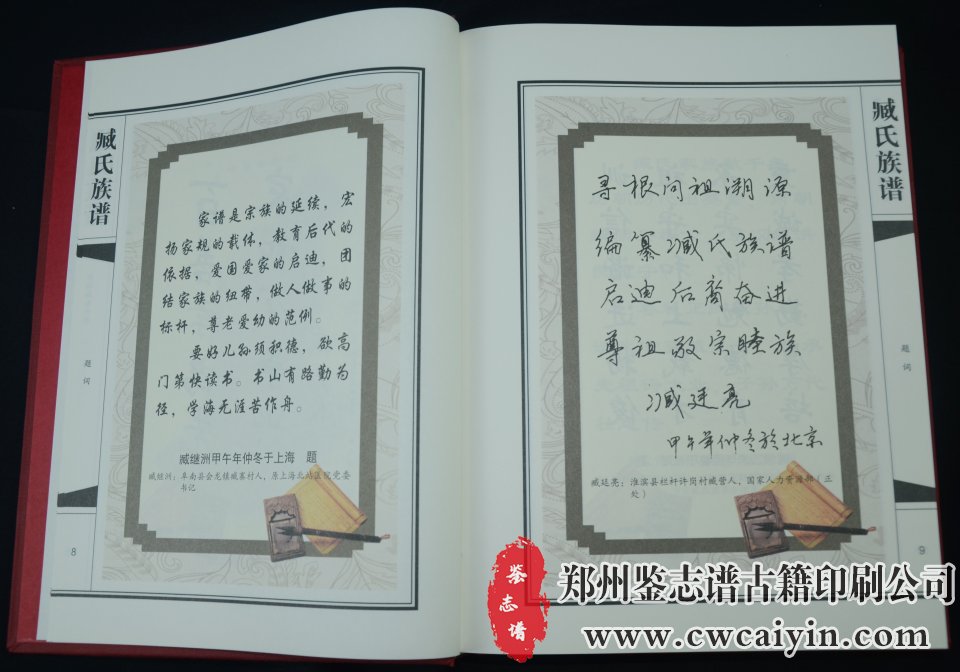 臧氏族谱
家谱是宗族的延续，宏
扬家规的载体，教育后代的
依据，爱国爱家的启迪，团
结家族的纽带，做人做事的
标杆，尊老爱幼的范例。
要好儿孙须积德，欲高
门第快读书。书山有路勤为
径，学海无涯苦作舟。
臧继洲甲午年仲冬于上海 题
臧继洲：阜南县会龙镇臧寨村人，原上海北站医院党委
书记
题词
8
臧氏族谱
寻根问祖溯源
编纂臧氏族谱
启迪后裔奋进
尊祖敬宗睦族
臧廷亮
甲午年仲冬於北京
臧廷亮：淮滨县栏杆许岗村臧营人，国家人力资源部（正
处）
题词
9
鉴志谱
郑州鉴志谱古籍印刷公司
www.cwcaiyin.com